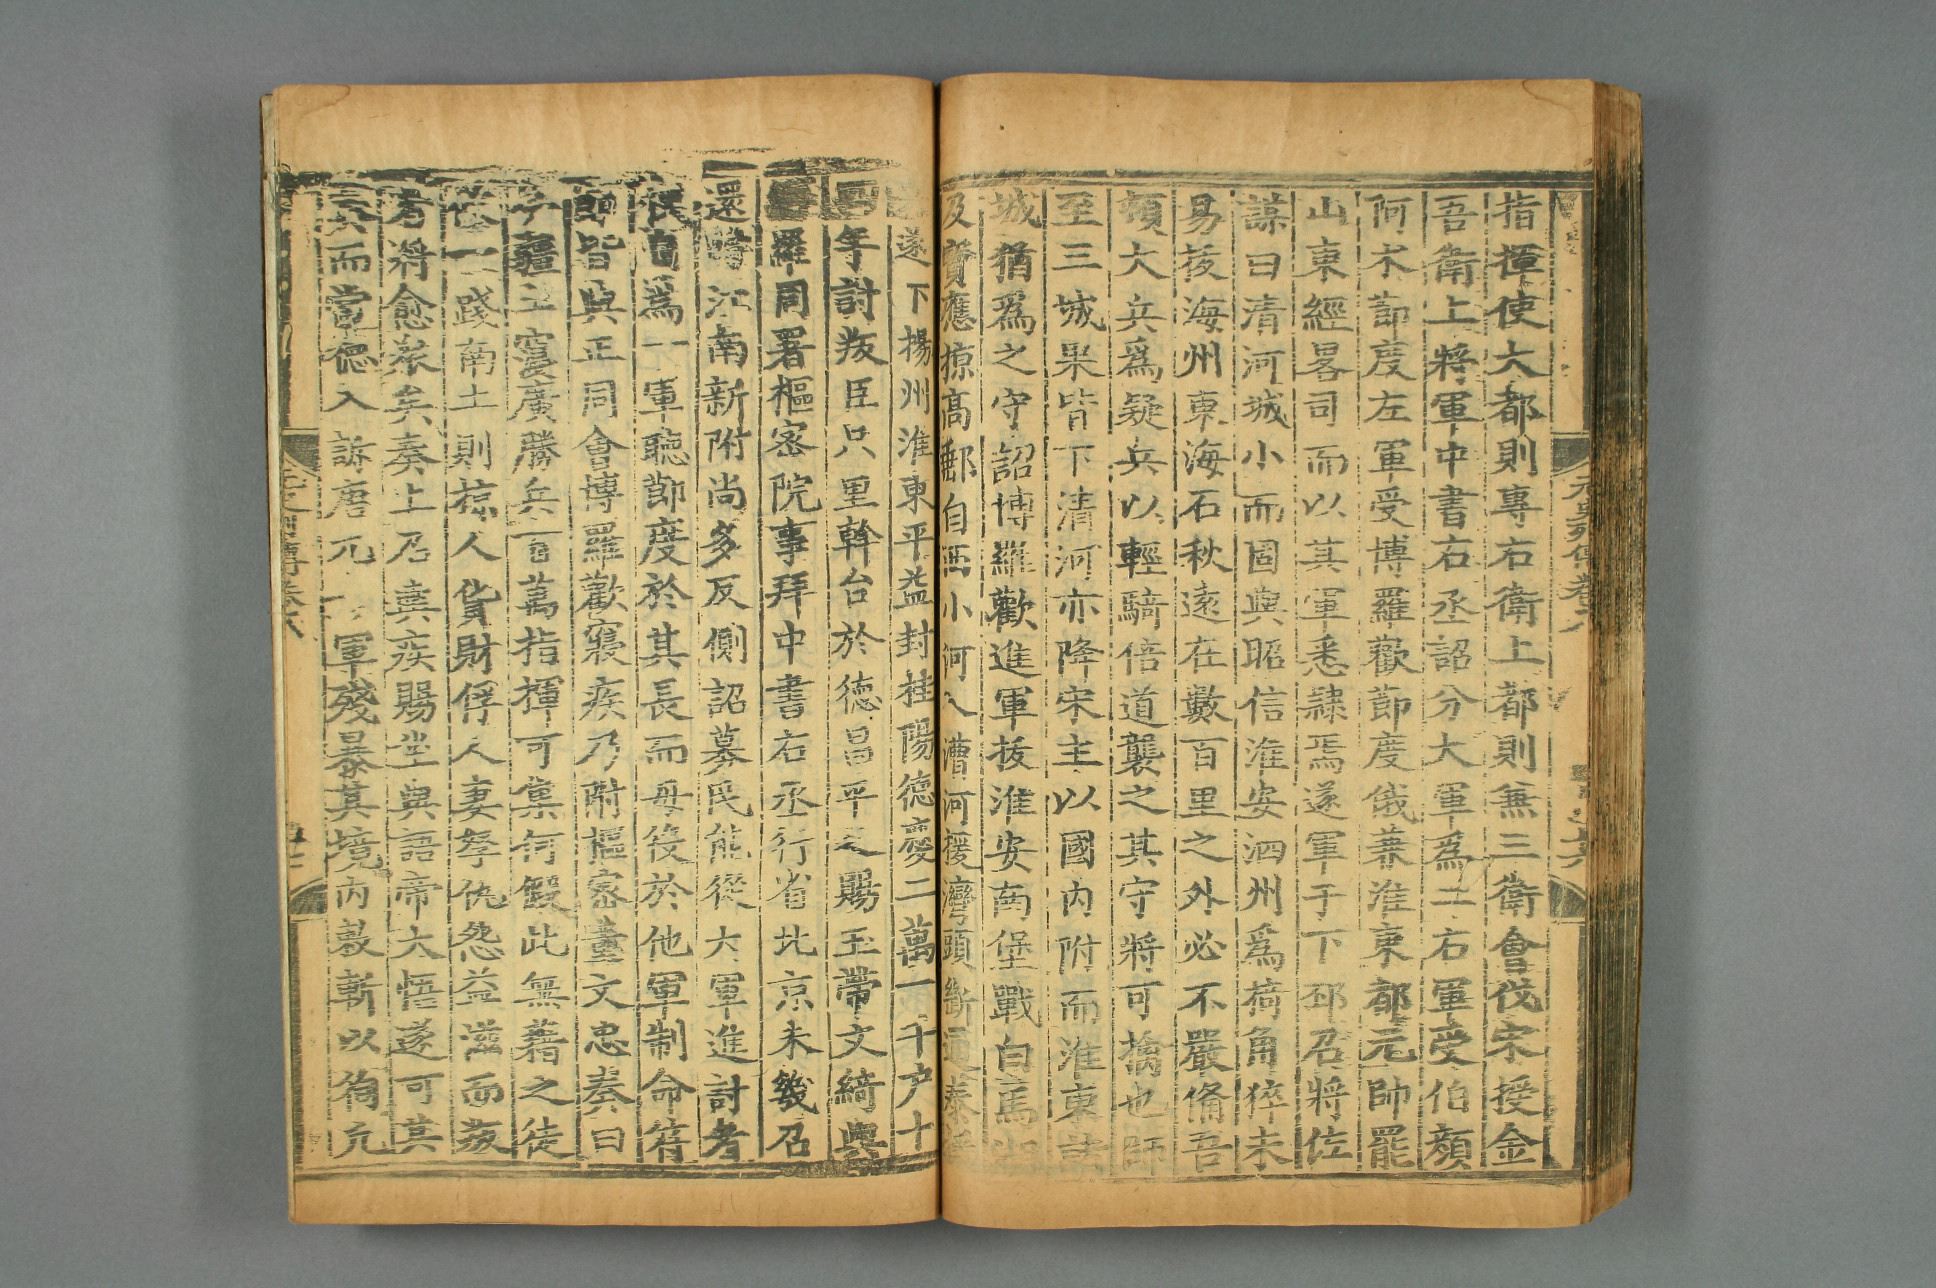 指揮使大都則專右衛上都則兼三衛會伐宋授金
吾衛上將軍中書右丞詔分大軍爲二右軍受伯顏
阿术節度左軍受博羅歡節度俄兼淮東都元帥罷
山東經畧司而以其軍悉隸焉遂軍于下邳召將佐
謀曰清河城小而固與昭信淮安泗州爲掎角猝未
易拔海州東海石秋遠在數百里之外必不嚴俻吾
頓大兵爲疑兵以輕騎倍道襲之其守將可擒也師
至三城果皆下清河亦降宋主以國内附而淮東諸
城猶爲之守詔博羅歡進軍拔淮安南堡戰白馬湖
及寶應掠高郵自西小河入漕河據灣頭斷通泰援
遂下揚州淮東平益封桂陽德慶二萬一千户十
四年討叛臣只里斡台於德昌平之賜玉帶文綺與
羅同署樞密院事拜中書右丞行省北京未幾召
還時江南新附尚多反側詔募民能從大軍進討者
俾自爲一軍聽節度於其長而毋役於他軍制命符
節皆與正同會博羅歡寢疾乃附樞密董文忠奏曰
今疆土寖廣勝兵百萬指揮可集何假此無藉之徒
彼一踐南土則掠人貨財俘人妻孥仇怨益滋而叛
者將愈衆矣奏上召輿疾賜坐與語帝大悟遂可其
奏而常德入訴唐兀一軍殘暴其境内敕斬以徇凡
元史列傳卷八
元史列傳卷八